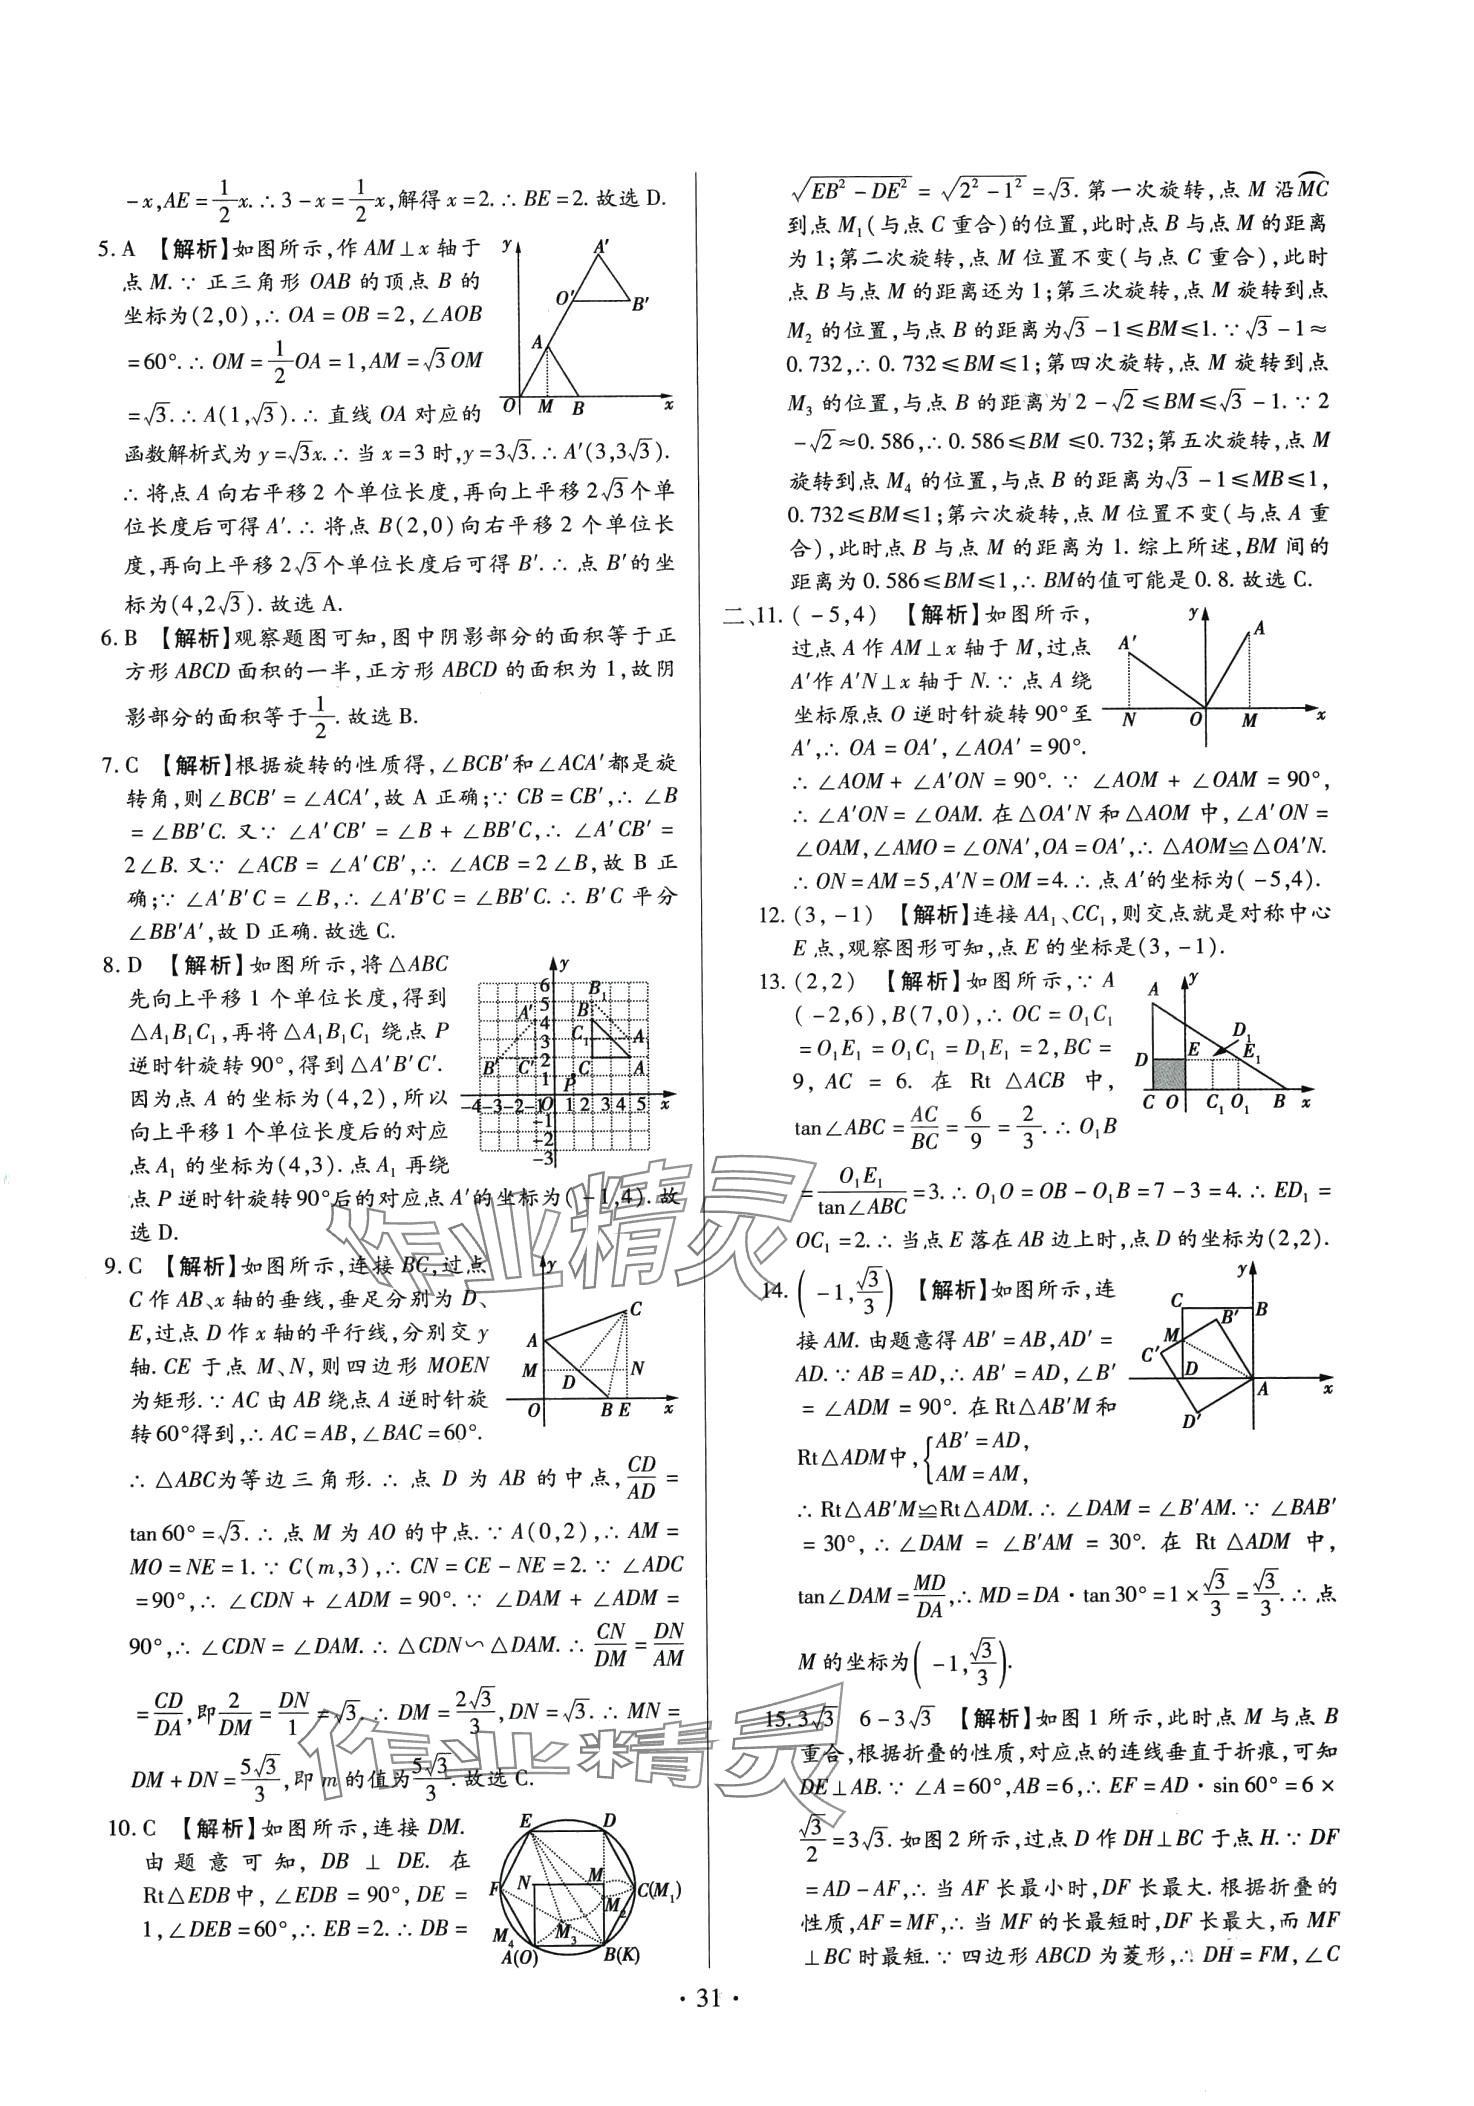 -x,AE=1/2x.∴3-x=1/2x,解得x=2.∴BE=2.故选D.
5.A 【解析】如图所示,作AM⊥x轴于
点M.∵正三角形OAB的顶点B的
坐标为(2,0),∴OA=OB=2,∠AOB
=60°.∴OM=1/2OA=1,AM=√3OM
=√3.∴A(1,√3).∴直线OA对应的
函数解析式为y=√3x.∴当x=3时,y=3√3.∴A′(3,3√3).
∴将点A向右平移2个单位长度,再向上平移2√3个单
位长度后可得A′.∴将点B(2,0)向右平移2个单位长
度,再向上平移2√3个单位长度后可得B′.∴点B′的坐
标为(4,2√3).故选A.
y A′ O′ B′ A O M B x
6.B 【解析】观察题图可知,图中阴影部分的面积等于正
方形ABCD面积的一半,正方形ABCD的面积为1,故阴
影部分的面积等于1/2.故选B.
7.C 【解析】根据旋转的性质得,∠BCB′和∠ACA′都是旋
转角,则∠BCB′=∠ACA′,故A正确;∵CB=CB′,∴∠B
=∠BB′C.又∵∠A′CB′=∠B+∠BB′C,∴∠A′CB′=
2∠B.又∵∠ACB=∠A′CB′,∴∠ACB=2∠B,故B正
确;∵∠A′B′C=∠B,∴∠A′B′C=∠BB′C.∴B′C平分
∠BB′A′,故D正确.故选C.
8.D 【解析】如图所示,将△ABC
先向上平移1个单位长度,得到
△A₁B₁C₁,再将△A₁B₁C₁绕点P
逆时针旋转90°,得到△A′B′C′.
因为点A的坐标为(4,2),所以
向上平移1个单位长度后的对应
点A₁的坐标为(4,3).点A₁再绕
点P逆时针旋转90°后的对应点A′的坐标为(-1,4).故
选D.
y 6 5 4 3 2 1 B₁ B A′ C₁ A₁ B′ C′ C A P -4 -3 -2 -1 O 1 2 3 4 5 x -1 -2 -3
9.C 【解析】如图所示,连接BC,过点
C作AB、x轴的垂线,垂足分别为D、
E,过点D作x轴的平行线,分别交y
轴.CE于点M、N,则四边形MOEN
为矩形.∵AC由AB绕点A逆时针旋
转60°得到,∴AC=AB,∠BAC=60°.
∴△ABC为等边三角形.∴点D为AB的中点,CD/AD=
tan60°=√3.∴点M为AO的中点.∵A(0,2),∴AM=
MO=NE=1.∵C(m,3),∴CN=CE-NE=2.∵∠ADC
=90°,∴∠CDN+∠ADM=90°.∵∠DAM+∠ADM=
90°,∴∠CDN=∠DAM.∴△CDN∽△DAM.∴CN/DM=DN/AM
=CD/DA,即2/DM=DN/1=√3.∴DM=2√3/3,DN=√3.∴MN=
DM+DN=5√3/3,即m的值为5√3/3.故选C.
y C A M N D O B E x
10.C 【解析】如图所示,连接DM.
由题意可知,DB⊥DE.在
Rt△EDB中,∠EDB=90°,DE=
1,∠DEB=60°,∴EB=2.∴DB=
E D N M F C(M₁) M₂ M₃ M₄ A(O) B(K)
√(EB²-DE²)=√(2²-1²)=√3.第一次旋转,点M沿MC⌒
到点M₁(与点C重合)的位置,此时点B与点M的距离
为1;第二次旋转,点M位置不变(与点C重合),此时
点B与点M的距离还为1;第三次旋转,点M旋转到点
M₂的位置,与点B的距离为√3-1≤BM≤1.∵√3-1≈
0.732,∴0.732≤BM≤1;第四次旋转,点M旋转到点
M₃的位置,与点B的距离为2-√2≤BM≤√3-1.∵2
-√2≈0.586,∴0.586≤BM≤0.732;第五次旋转,点M
旋转到点M₄的位置,与点B的距离为√3-1≤MB≤1,
0.732≤BM≤1;第六次旋转,点M位置不变(与点A重
合),此时点B与点M的距离为1.综上所述,BM间的
距离为0.586≤BM≤1,∴BM的值可能是0.8.故选C.
二、11.(-5,4) 【解析】如图所示,
过点A作AM⊥x轴于M,过点
A′作A′N⊥x轴于N.∵点A绕
坐标原点O逆时针旋转90°至
A′,∴OA=OA′,∠AOA′=90°.
∴∠AOM+∠A′ON=90°.∵∠AOM+∠OAM=90°,
∴∠A′ON=∠OAM.在△OA′N和△AOM中,∠A′ON=
∠OAM,∠AMO=∠ONA′,OA=OA′,∴△AOM≌△OA′N.
∴ON=AM=5,A′N=OM=4.∴点A′的坐标为(-5,4).
y A A′ N O M x
12.(3,-1) 【解析】连接AA₁、CC₁,则交点就是对称中心
E点,观察图形可知,点E的坐标是(3,-1).
13.(2,2) 【解析】如图所示,∵A
(-2,6),B(7,0),∴OC=O₁C₁
=O₁E₁=O₁C₁=D₁E₁=2,BC=
9,AC=6.在Rt△ACB中,
tan∠ABC=AC/BC=6/9=2/3.∴O₁B
=O₁E₁/tan∠ABC=3.∴O₁O=OB-O₁B=7-3=4.∴ED₁=
OC₁=2.∴当点E落在AB边上时,点D的坐标为(2,2).
y A D₁ D E E₁ C O C₁ O₁ B x
14.(-1,√3/3) 【解析】如图所示,连
接AM.由题意得AB′=AB,AD′=
AD.∵AB=AD,∴AB′=AD,∠B′
=∠ADM=90°.在Rt△AB′M和
Rt△ADM中,{AB′=AD,
AM=AM,
∴Rt△AB′M≌Rt△ADM.∴∠DAM=∠B′AM.∵∠BAB′
=30°,∴∠DAM=∠B′AM=30°.在Rt△ADM中,
tan∠DAM=MD/DA,∴MD=DA·tan30°=1×√3/3=√3/3.∴点
M的坐标为(-1,√3/3).
y C B B′ M C′ D A x D′
15.3√3 6-3√3 【解析】如图1所示,此时点M与点B
重合,根据折叠的性质,对应点的连线垂直于折痕,可知
DE⊥AB.∵∠A=60°,AB=6,∴EF=AD·sin60°=6×
√3/2=3√3.如图2所示,过点D作DH⊥BC于点H.∵DF
=AD-AF,∴当AF长最小时,DF长最大.根据折叠的
性质,AF=MF,∴当MF的长最短时,DF长最大,而MF
⊥BC时最短.∵四边形ABCD为菱形,∴DH=FM,∠C
作业精灵
作业精灵
·31·